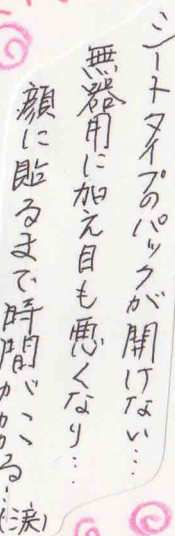 シートタイプのパックが開けない…
無器用に加え目も悪くなり…
顔に貼るまで時間がかかる…(涙)